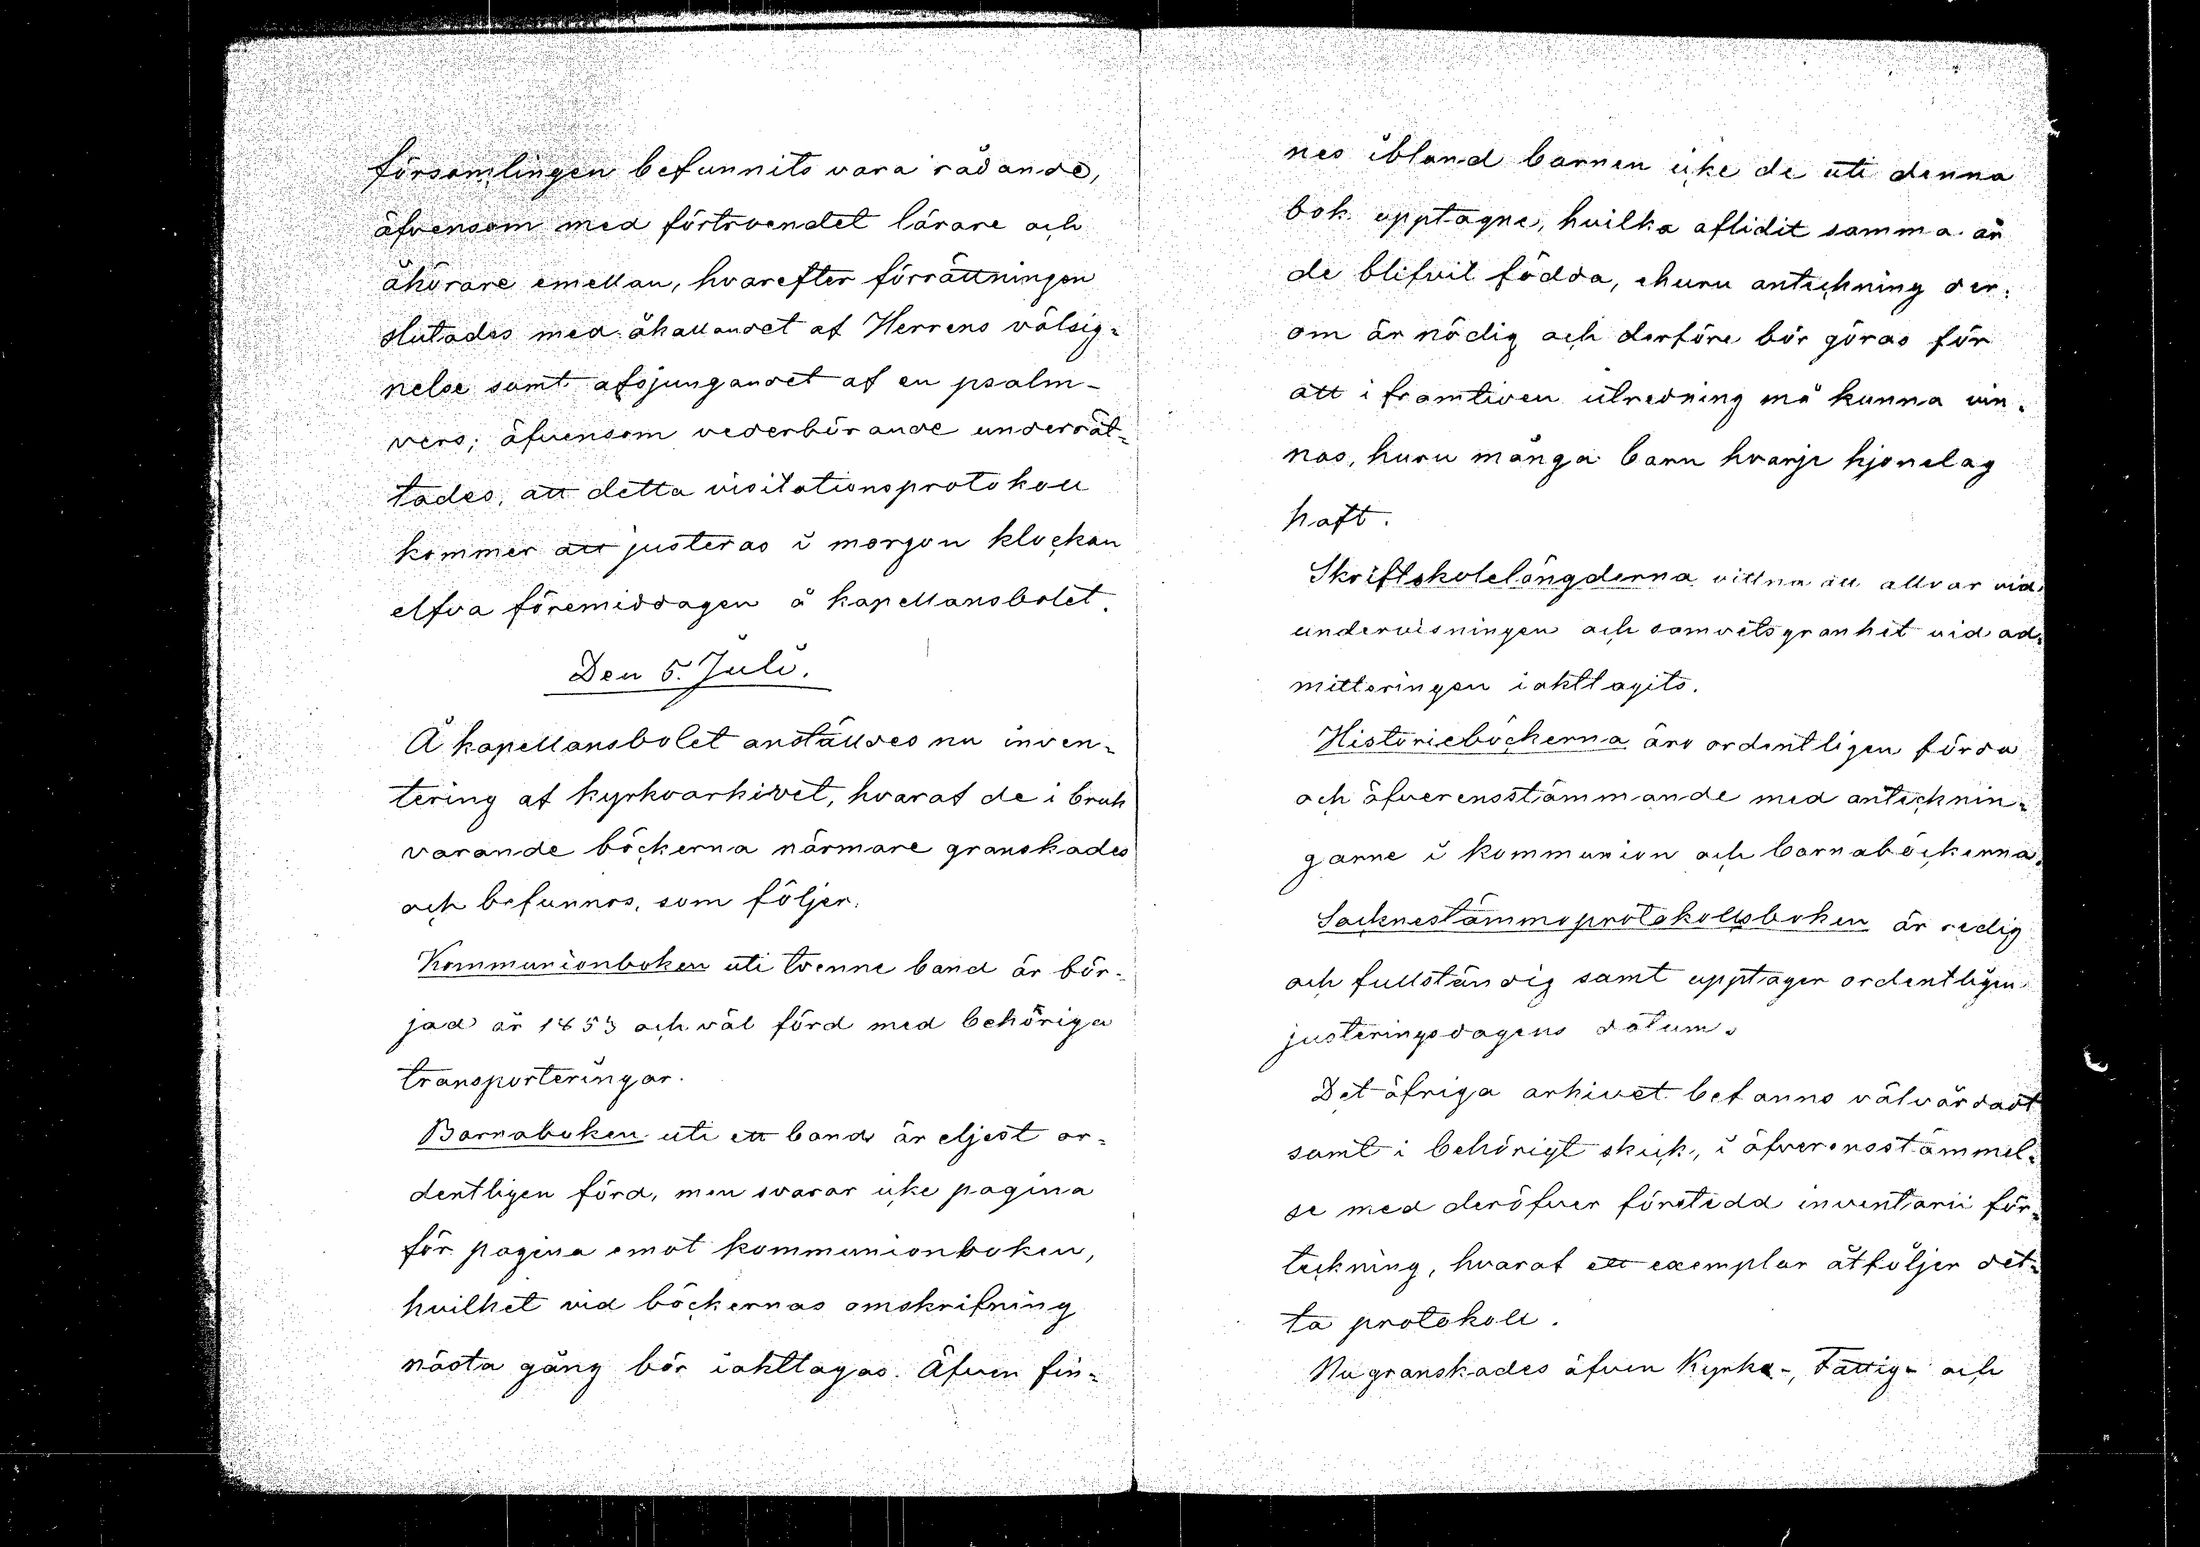 församlingen befunnits vara rådande,
äfvensom med förtroendet lärare och
åhörare emellan, hvarefter förrättningen
slutades med åkallandet af Herrens välsig-
nelse samt afsjungandet af en psalm-
vers; äfvensom vederbörande underrät-
tades, att detta visitationsprotokoll
kommer att justeras i morgon klockan
elfva föremiddagen å kapellansbolet.
Den 5. Juli.
Å kapellansbolet anställdes nu inven-
tering af kyrkoarkivet, hvaraf de i bruk
varande böckerna närmare granskades
och befunnos, som följer:
Kommunionboken uti tvenne band är bör-
jad år 1853 och väl förd med behöriga
transporteringar.
Barnaboken uti ett band är eljest or-
dentligen förd, men svarar icke pagina
för pagina emot kommunionboken,
hvilket vid böckernas omskrifning
nästa gång bör iakttagas. Äfven fin-
nes ibland barnen icke de uti denna
bok upptagne, hvilka aflidit samma år
de blifvit födda, ehuru anteckning der-
om är nödig och derföre bör göras för
att i framtiden utredning må kunna vin-
nas, huru många barn hvarje hjonelag
haft.
Skriftskolelängderna vittna att allvar vid
undervisningen och samvetsgranhet vid ad-
mitteringen iakttagits.
Historieböckerna äro ordentligen förda
och öfverensstämmande med antecknin-
garne i kommunion och barnaböckerna.
Socknestämmoprotokollsboken är redig
och fullständig samt upptager ordentligen
justeringsdagens datum.
Det öfriga arkivet befanns välvårdadt
samt i behörigt skick, i öfverensstämmel-
se med deröfver företedd inventarii för-
teckning, hvaraf ett exemplar åtföljer det-
ta protokoll.
Nu granskades äfven Kyrko-, Fattig- och